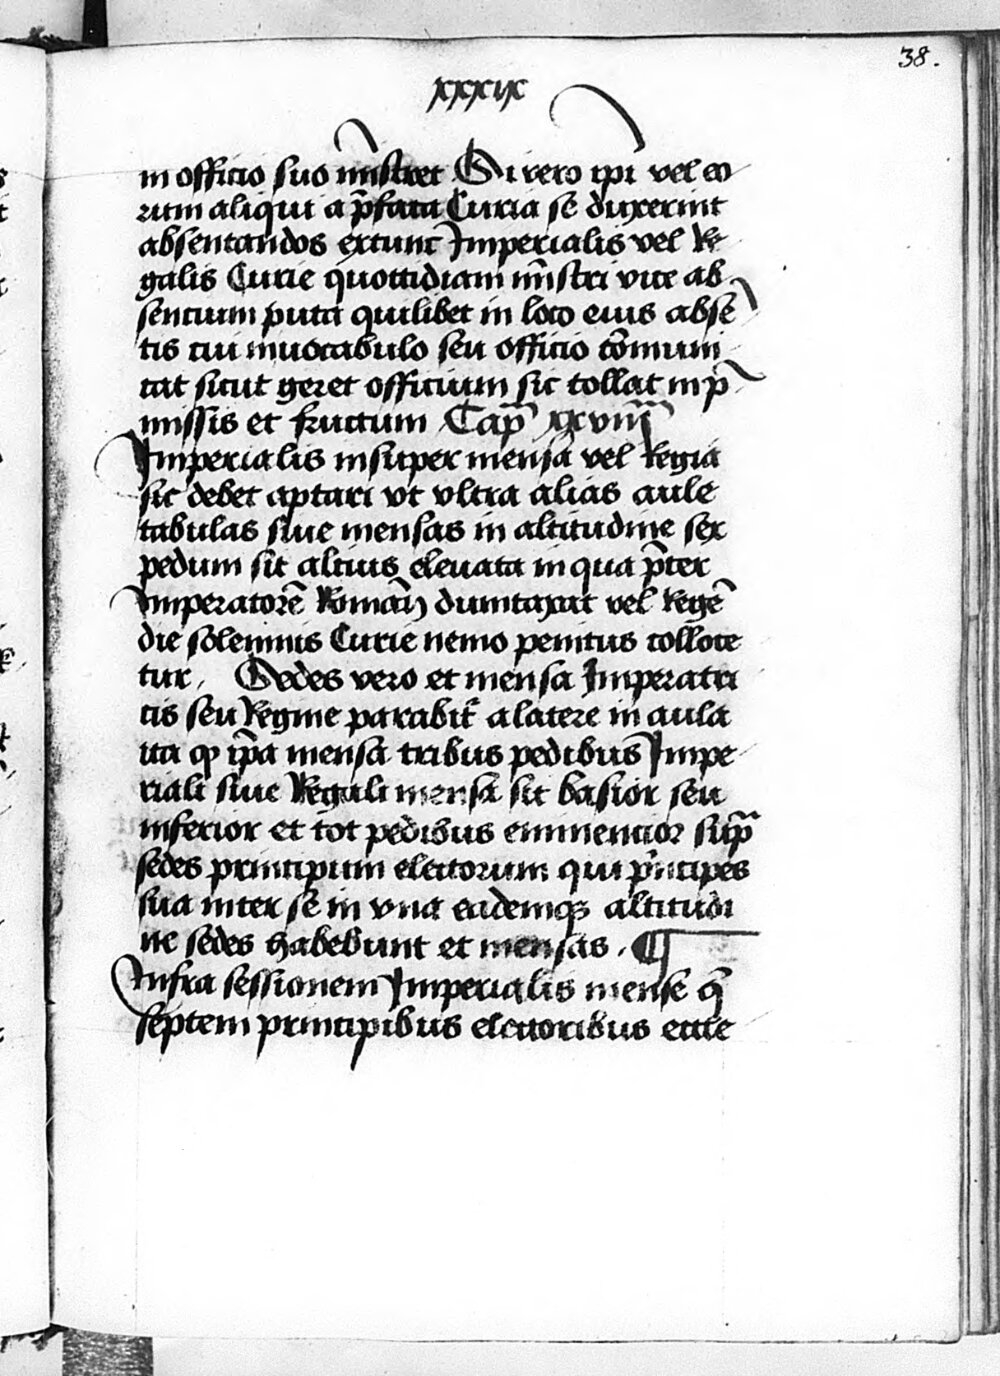 38.
xxxix
in officio suo mīstret Si vero ip̄i vel eo
rum aliqui a p̄fata Curia se duxerint
absentandos extunc Imperialis vel Re
galis Curie quottidiani mīstri vice ab
sentium puta quilibet in loco eius absē
tis cui in vocabulo seu officio cōmuni
cat sicut geret officium sic tollat in p̄
missis et fructum Cap̄ xxviiī
Imperialis insuper mensa vel Regia
sic debet aptari vt vltra alias aule
tabulas siue mensas in altitudine sex
pedum sit altius eleuata in qua p̄ter
Imperatorē Romāū dumtaxat vel Regē
die solennis Curie nemo penitus colloce
tur . Sedes vero et mensa Imperatri
cis seu Regine parabit᷑ a latere in aula
ita ꝙ ip̄a mensa tribus pedibus Impe
riali siue Regali mensa sit basior seu
inferior et tot pedibus eminencior sup̄
sedes principum electorum qui p̄ncipes
sua inter se in vna eademqꝫ altitudi
ne sedes habebunt et mensas . ¶
Infra sessionem Imperialis mense ꝙ̄
septem principibus electoribus eccle